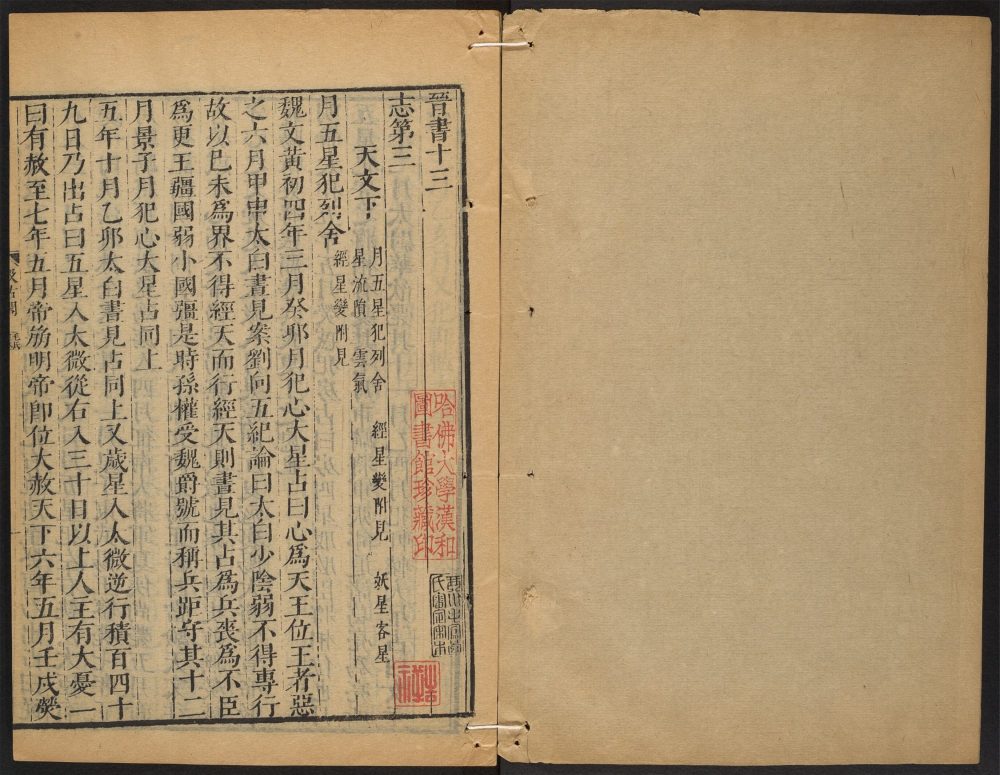 晉書十三
志第三
天文下
月五星犯列舍 經星變附見 妖星客星
星流隕 雲氣
月五星犯列舍
經星變附見
魏文黃初四年三月癸卯月犯心大星占曰心爲天王位王者惡
之六月甲申太白晝見案劉向五紀論曰太白少陰弱不得專行
故以巳未爲界不得經天而行經天則晝見其占爲兵喪爲不臣
爲更王疆國弱小國彊是時孫權受魏爵號而稱兵距守其十二
月景子月犯心大星占同上
五年十月乙卯太白晝見占同上又歲星入太微逆行積百四十
九日乃出占曰五星入太微從右入三十日以上人王有大憂一
曰有赦至七年五月帝崩明帝卽位大赦天下六年五月壬戌熒
汲古閣
哈佛大學漢和
圖書館珍藏印